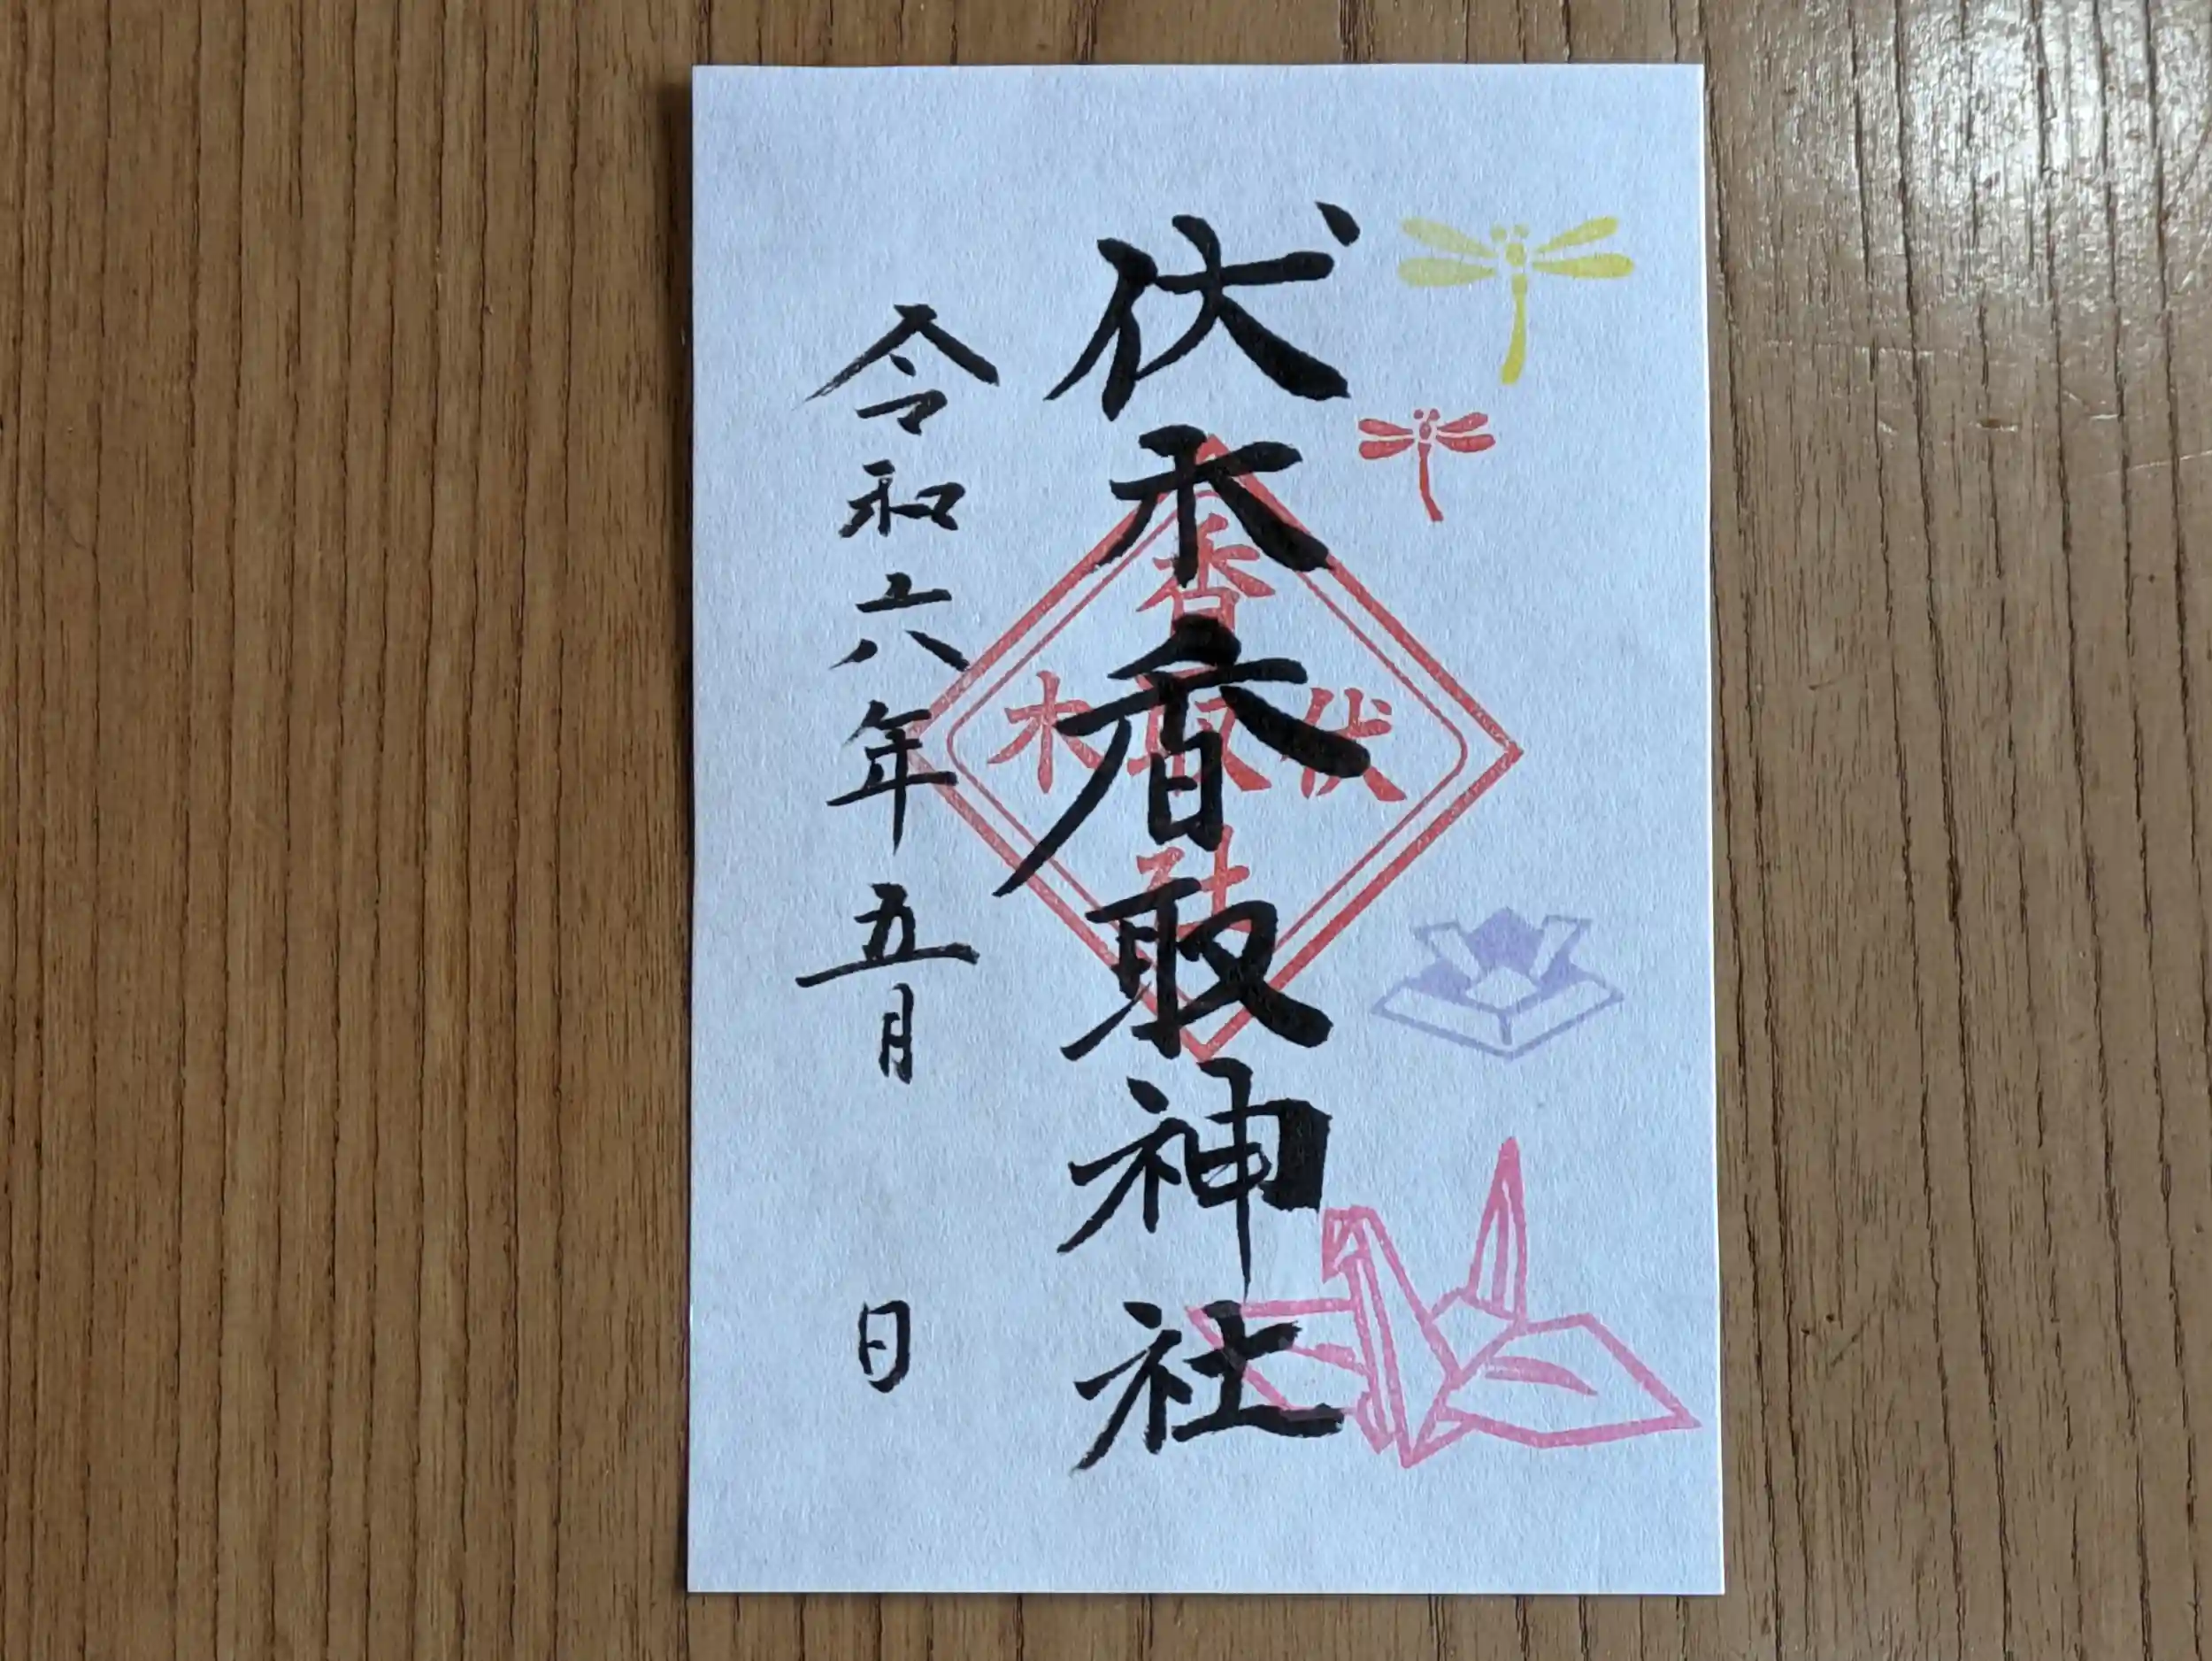 伏木香取神社
香取社
伏木
令和六年五月 日